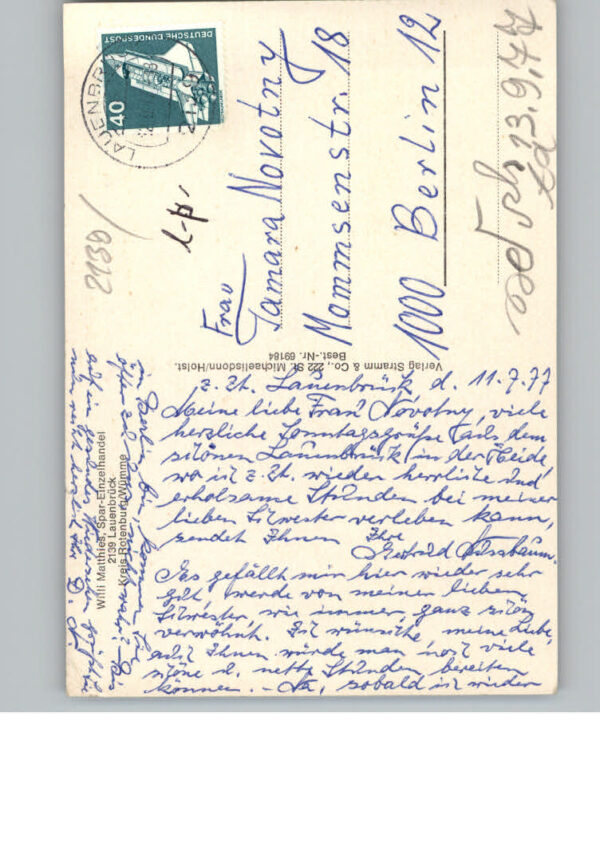 DEUTSCHE BUNDESPOST
40
LAUENBR
2139/
Frau
Tamara Novotny
Mommsenstr. 18
1000 Berlin 12
13.9.77
Verlag Stramm & Co., 222 St. Michaelisdonn/Holst.
Best.-Nr. 69184
Willi Matthies, Spar-Einzelhandel
2139 Lauenbrück
Kreis Rotenburg/Wümme
z. Zt. Lauenbrück d. 11.7.77
Meine liebe Frau Novotny, viele
herzliche Sonntagsgrüße aus dem
schönen Lauenbrück (in der Heide
wo ich z. Zt. wieder herrliche und
erholsame Stunden bei meiner
lieben Schwester verleben kann,
sendet Ihnen Ihre
Es gefällt mir hier wieder sehr
gut, werde von meiner lieben
Schwester, wie immer ganz schön
verwöhnt. Ich wünschte, meine Liebe,
auch Ihnen würde man noch viele
schöne u. nette Stunden bereiten
können. – Ja, sobald ich wieder
in Berlin bin, kommen Sie